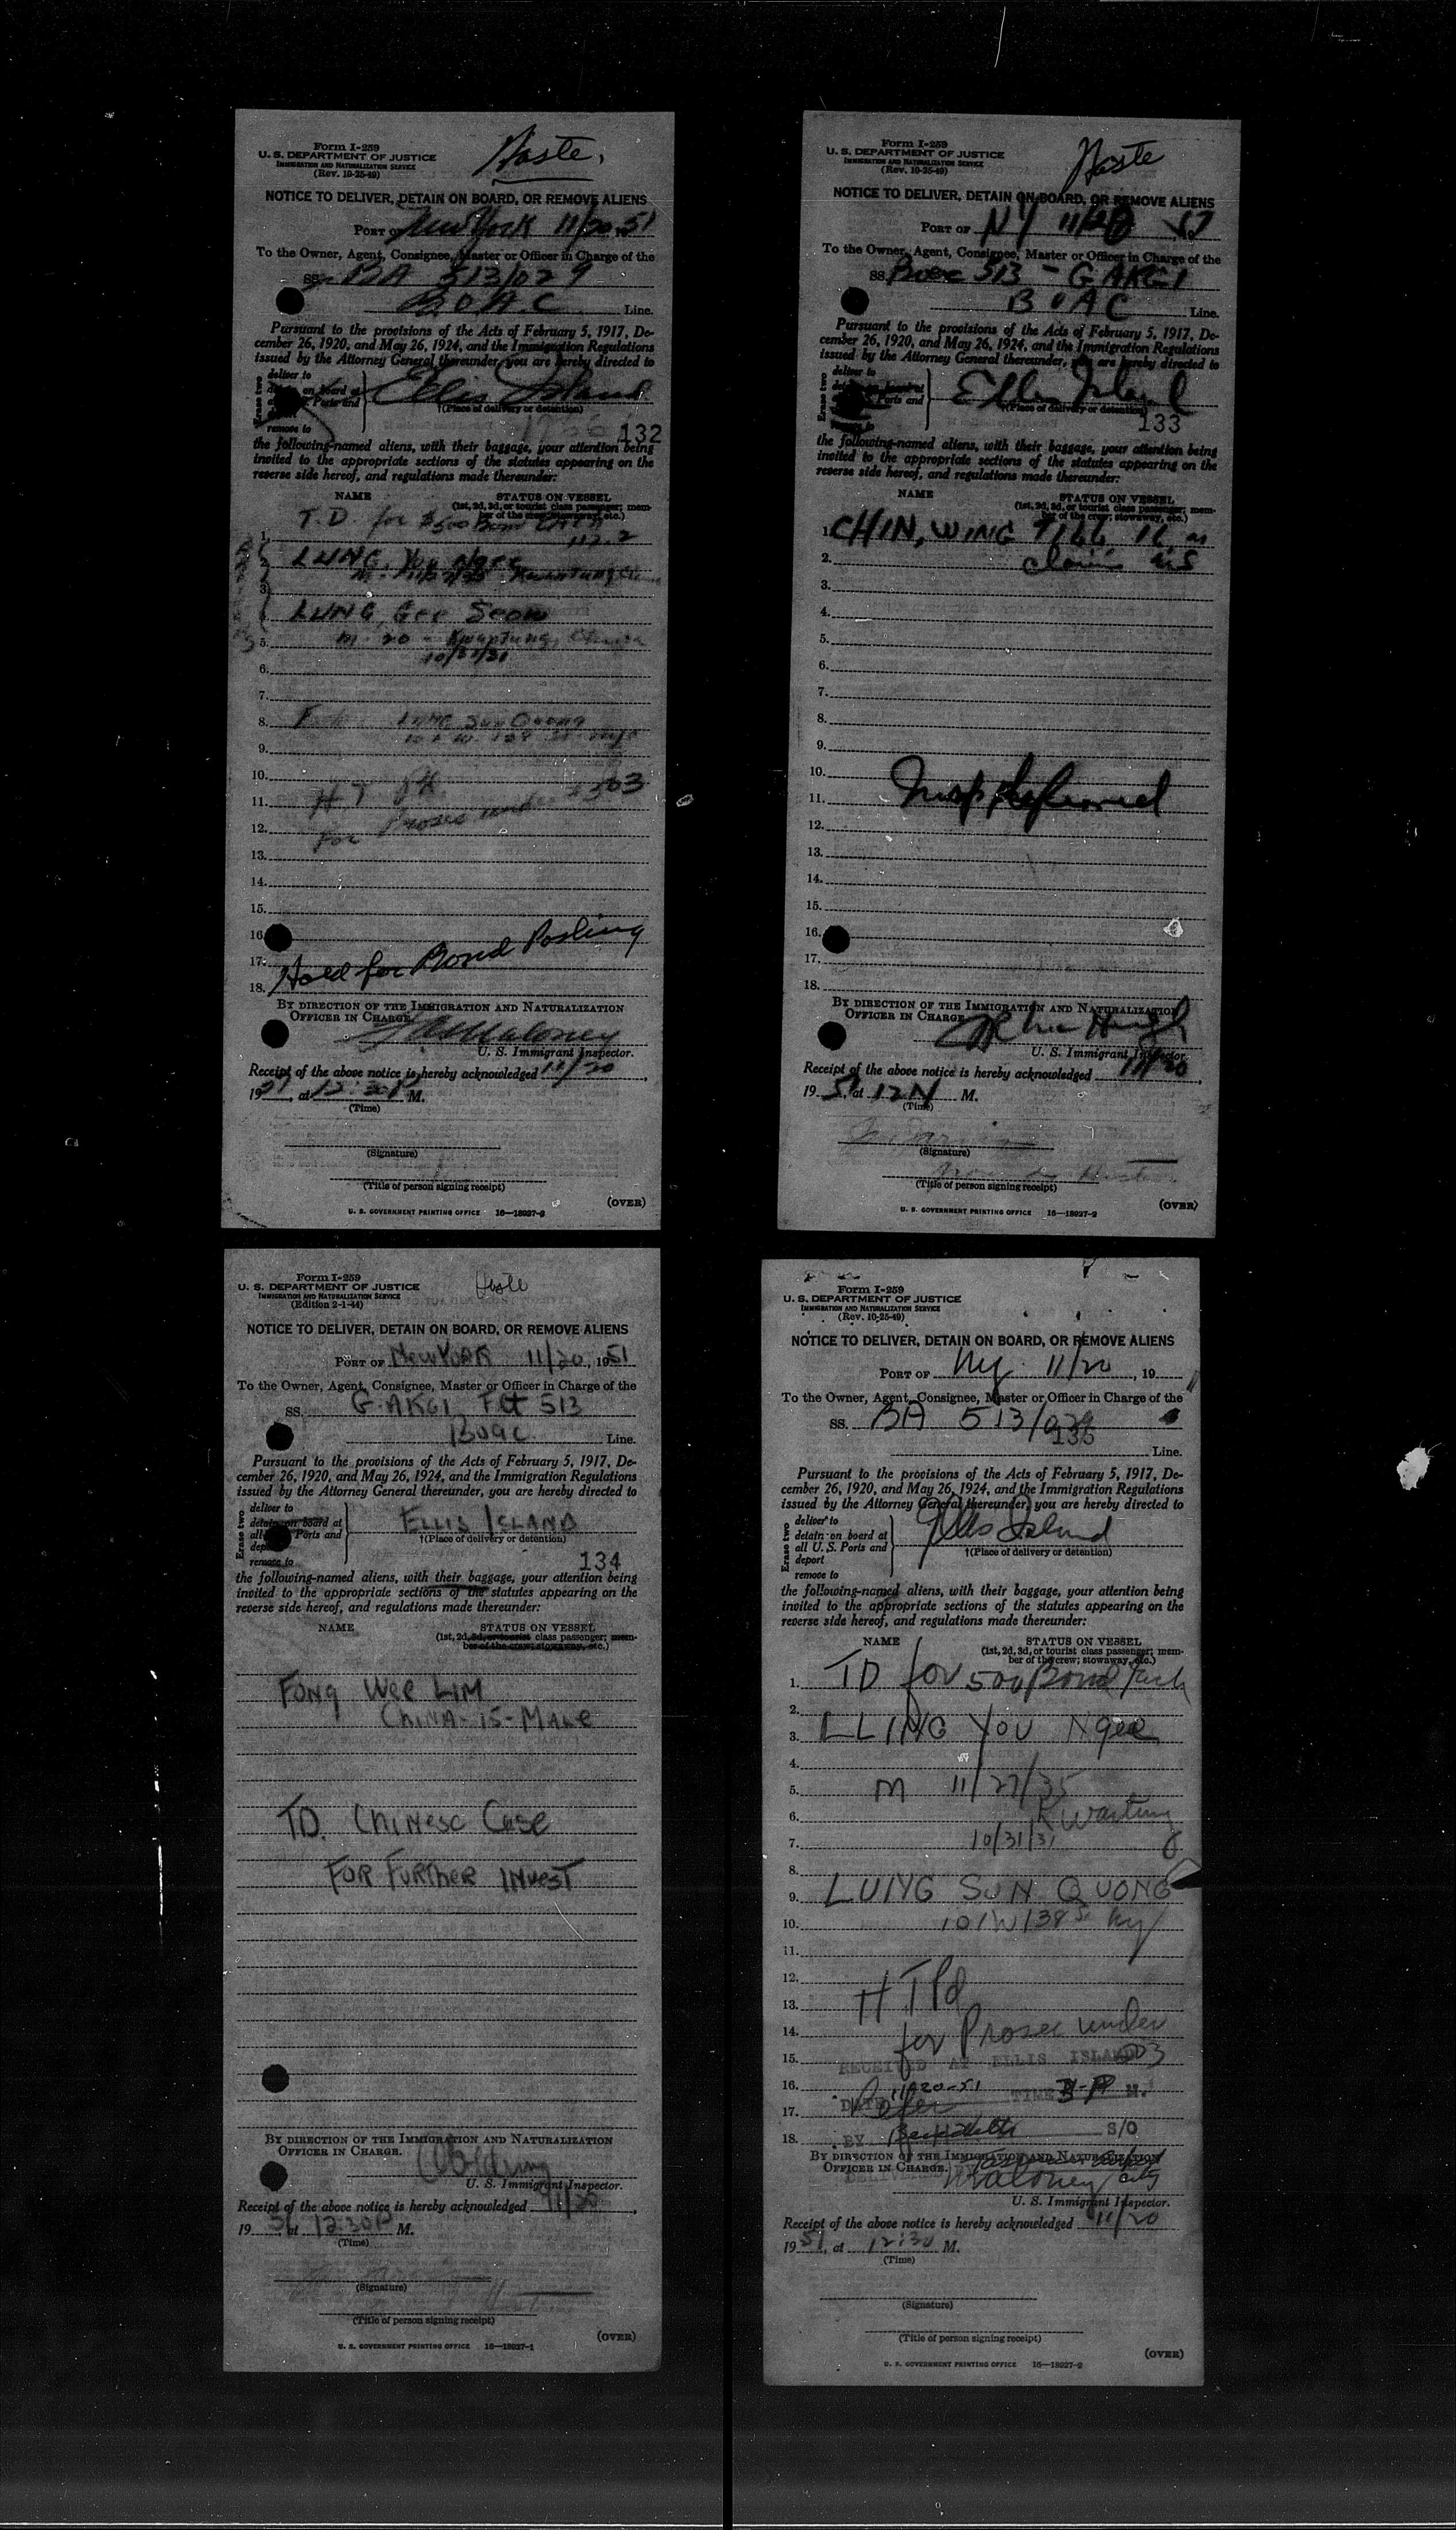 Form I-259
U. S. DEPARTMENT OF JUSTICE
IMMIGRATION AND NATURALIZATION SERVICE
(Rev. 10-25-49)
Haste.
NOTICE TO DELIVER, DETAIN ON BOARD, OR REMOVE ALIENS
PORT OF New York 11/20 51
To the Owner, Agent, Consignee, Master or Officer in Charge of the
SS. BA 513/029
B.O.A.C. Line.
Pursuant to the provisions of the Acts of February 5, 1917, De-
cember 26, 1920, and May 26, 1924, and the Immigration Regulations
issued by the Attorney General thereunder, you are hereby directed to
Erase two
deliver to
detain on board at
Ports and
remove to
Ellis Island
†(Place of delivery or detention)
132
the following-named aliens, with their baggage, your attention being
invited to the appropriate sections of the statutes appearing on the
reverse side hereof, and regulations made thereunder:
NAME STATUS ON VESSEL
(1st, 2d, 3d, or tourist class passenger; mem-
ber of the crew; stowaway, etc.)
T.D for $500 Bond
1.
2. LUNG, You Ngee
3.
LUNG, Gee Seow
5. m. 20 - Kwangtung, China
10/31/31
6.
7.
8. Lung Sun Quong
9.
10.
11.
For Prosec under
12.
13.
14.
15.
16.
17.
18. Held for Bond Posting
BY DIRECTION OF THE IMMIGRATION AND NATURALIZATION
OFFICER IN CHARGE.
Maloney
U. S. Immigrant Inspector.
Receipt of the above notice is hereby acknowledged 11/20,
19 51, at 12:30P M.
(Time)
(Signature)
(Title of person signing receipt)
(OVER)
U. S. GOVERNMENT PRINTING OFFICE 16—18927-2
Form I-259
U. S. DEPARTMENT OF JUSTICE
IMMIGRATION AND NATURALIZATION SERVICE
(Rev. 10-25-49)
Haste
NOTICE TO DELIVER, DETAIN ON BOARD, OR REMOVE ALIENS
PORT OF NY 11/20
To the Owner, Agent, Consignee, Master or Officer in Charge of the
SS. 513 - GAKGI
BOAC Line.
Pursuant to the provisions of the Acts of February 5, 1917, De-
cember 26, 1920, and May 26, 1924, and the Immigration Regulations
issued by the Attorney General thereunder, you are hereby directed to
Erase two
deliver to
detain on board at
Ports and
remove to
Ellis Island
†(Place of delivery or detention)
133
the following-named aliens, with their baggage, your attention being
invited to the appropriate sections of the statutes appearing on the
reverse side hereof, and regulations made thereunder:
NAME STATUS ON VESSEL
(1st, 2d, 3d, or tourist class passenger; mem-
ber of the crew; stowaway, etc.)
1. CHIN, WING 16 m
2. claims US
3.
4.
5.
6.
7.
8.
9.
10.
11. Insp. deferred
12.
13.
14.
15.
16.
17.
18.
BY DIRECTION OF THE IMMIGRATION AND NATURALIZATION
OFFICER IN CHARGE.
U. S. Immigrant Inspector.
Receipt of the above notice is hereby acknowledged 11/20,
19 51, at 12N M.
(Time)
(Signature)
(Title of person signing receipt)
(OVER)
U. S. GOVERNMENT PRINTING OFFICE 16—18927-2
Form I-259
U. S. DEPARTMENT OF JUSTICE
IMMIGRATION AND NATURALIZATION SERVICE
(Edition 2-1-44)
Haste
NOTICE TO DELIVER, DETAIN ON BOARD, OR REMOVE ALIENS
PORT OF New York 11/20, 1951
To the Owner, Agent, Consignee, Master or Officer in Charge of the
SS. G-AKGI Flt 513
BOAC Line.
Pursuant to the provisions of the Acts of February 5, 1917, De-
cember 26, 1920, and May 26, 1924, and the Immigration Regulations
issued by the Attorney General thereunder, you are hereby directed to
Erase two
deliver to
detain on board at
all Ports and
remove to
ELLIS ISLAND
†(Place of delivery or detention)
134
the following-named aliens, with their baggage, your attention being
invited to the appropriate sections of the statutes appearing on the
reverse side hereof, and regulations made thereunder:
NAME STATUS ON VESSEL
(1st, 2d, 3d, or tourist class passenger; mem-
ber of the crew; stowaway, etc.)
FONG WEE LIM
CHINA-15-MALE
TD. CHINESE CASE
FOR FURTHER INVEST
BY DIRECTION OF THE IMMIGRATION AND NATURALIZATION
OFFICER IN CHARGE.
U. S. Immigrant Inspector.
Receipt of the above notice is hereby acknowledged 11/20
19 51, at 12:30P M.
(Time)
(Signature)
(Title of person signing receipt)
(OVER)
U. S. GOVERNMENT PRINTING OFFICE 16—18927-1
Form I-259
U. S. DEPARTMENT OF JUSTICE
IMMIGRATION AND NATURALIZATION SERVICE
(Rev. 10-25-49)
NOTICE TO DELIVER, DETAIN ON BOARD, OR REMOVE ALIENS
PORT OF Ny. 11/20, 19
To the Owner, Agent, Consignee, Master or Officer in Charge of the
SS. BA 513/029
135
Line.
Pursuant to the provisions of the Acts of February 5, 1917, De-
cember 26, 1920, and May 26, 1924, and the Immigration Regulations
issued by the Attorney General thereunder, you are hereby directed to
Erase two
deliver to
detain on board at
all U. S. Ports and
deport
remove to
Ellis Island
†(Place of delivery or detention)
the following-named aliens, with their baggage, your attention being
invited to the appropriate sections of the statutes appearing on the
reverse side hereof, and regulations made thereunder:
NAME STATUS ON VESSEL
(1st, 2d, 3d, or tourist class passenger; mem-
ber of the crew; stowaway, etc.)
1. TD for 500 Bond Each
2.
3. LUNG YOU Ngee
4.
5. m 11/27/35
6. Kwangtung
7. 10/31/31
8.
9. LUNG SUN QUONG
10. 101 W 138 St Ny
11.
12.
13. H.T Pd
14. for Prosec under
15. RECEIVED AT ELLIS ISLAND
16. DATE 11-20-51 TIME P M.
17.
18. BY S/O
BY DIRECTION OF THE IMMIGRATION AND NATURALIZATION
OFFICER IN CHARGE.
Maloney city
U. S. Immigrant Inspector.
Receipt of the above notice is hereby acknowledged 11/20
19 51, at 12:30 M.
(Time)
(Signature)
(Title of person signing receipt)
(OVER)
U. S. GOVERNMENT PRINTING OFFICE 16—18927-2